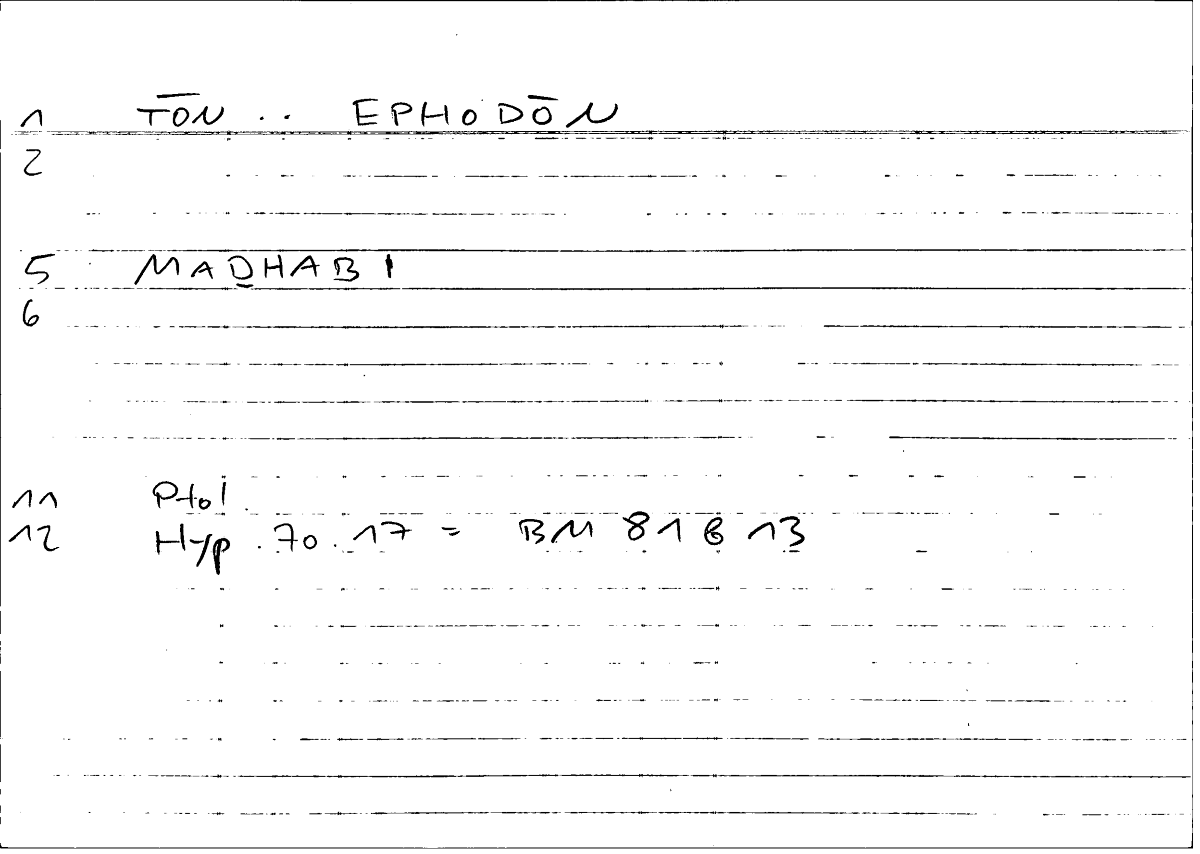 1 TŌN .. EPHODŌN
2
5 MAḎHABI
6
11 Ptol.
12 Hyp. 70.17 = BM 81 6 13